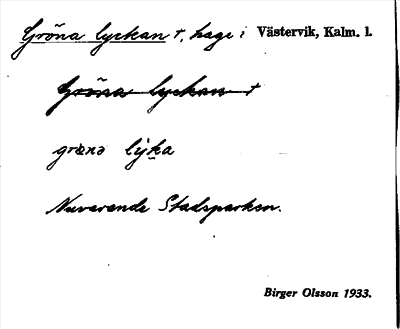 Gröna lyckan †, hage i Västervik, Kalm. l.
Gröna lyckan †
grönə lỳka
Nuvarande Stadsparken.
Birger Olsson 1933.